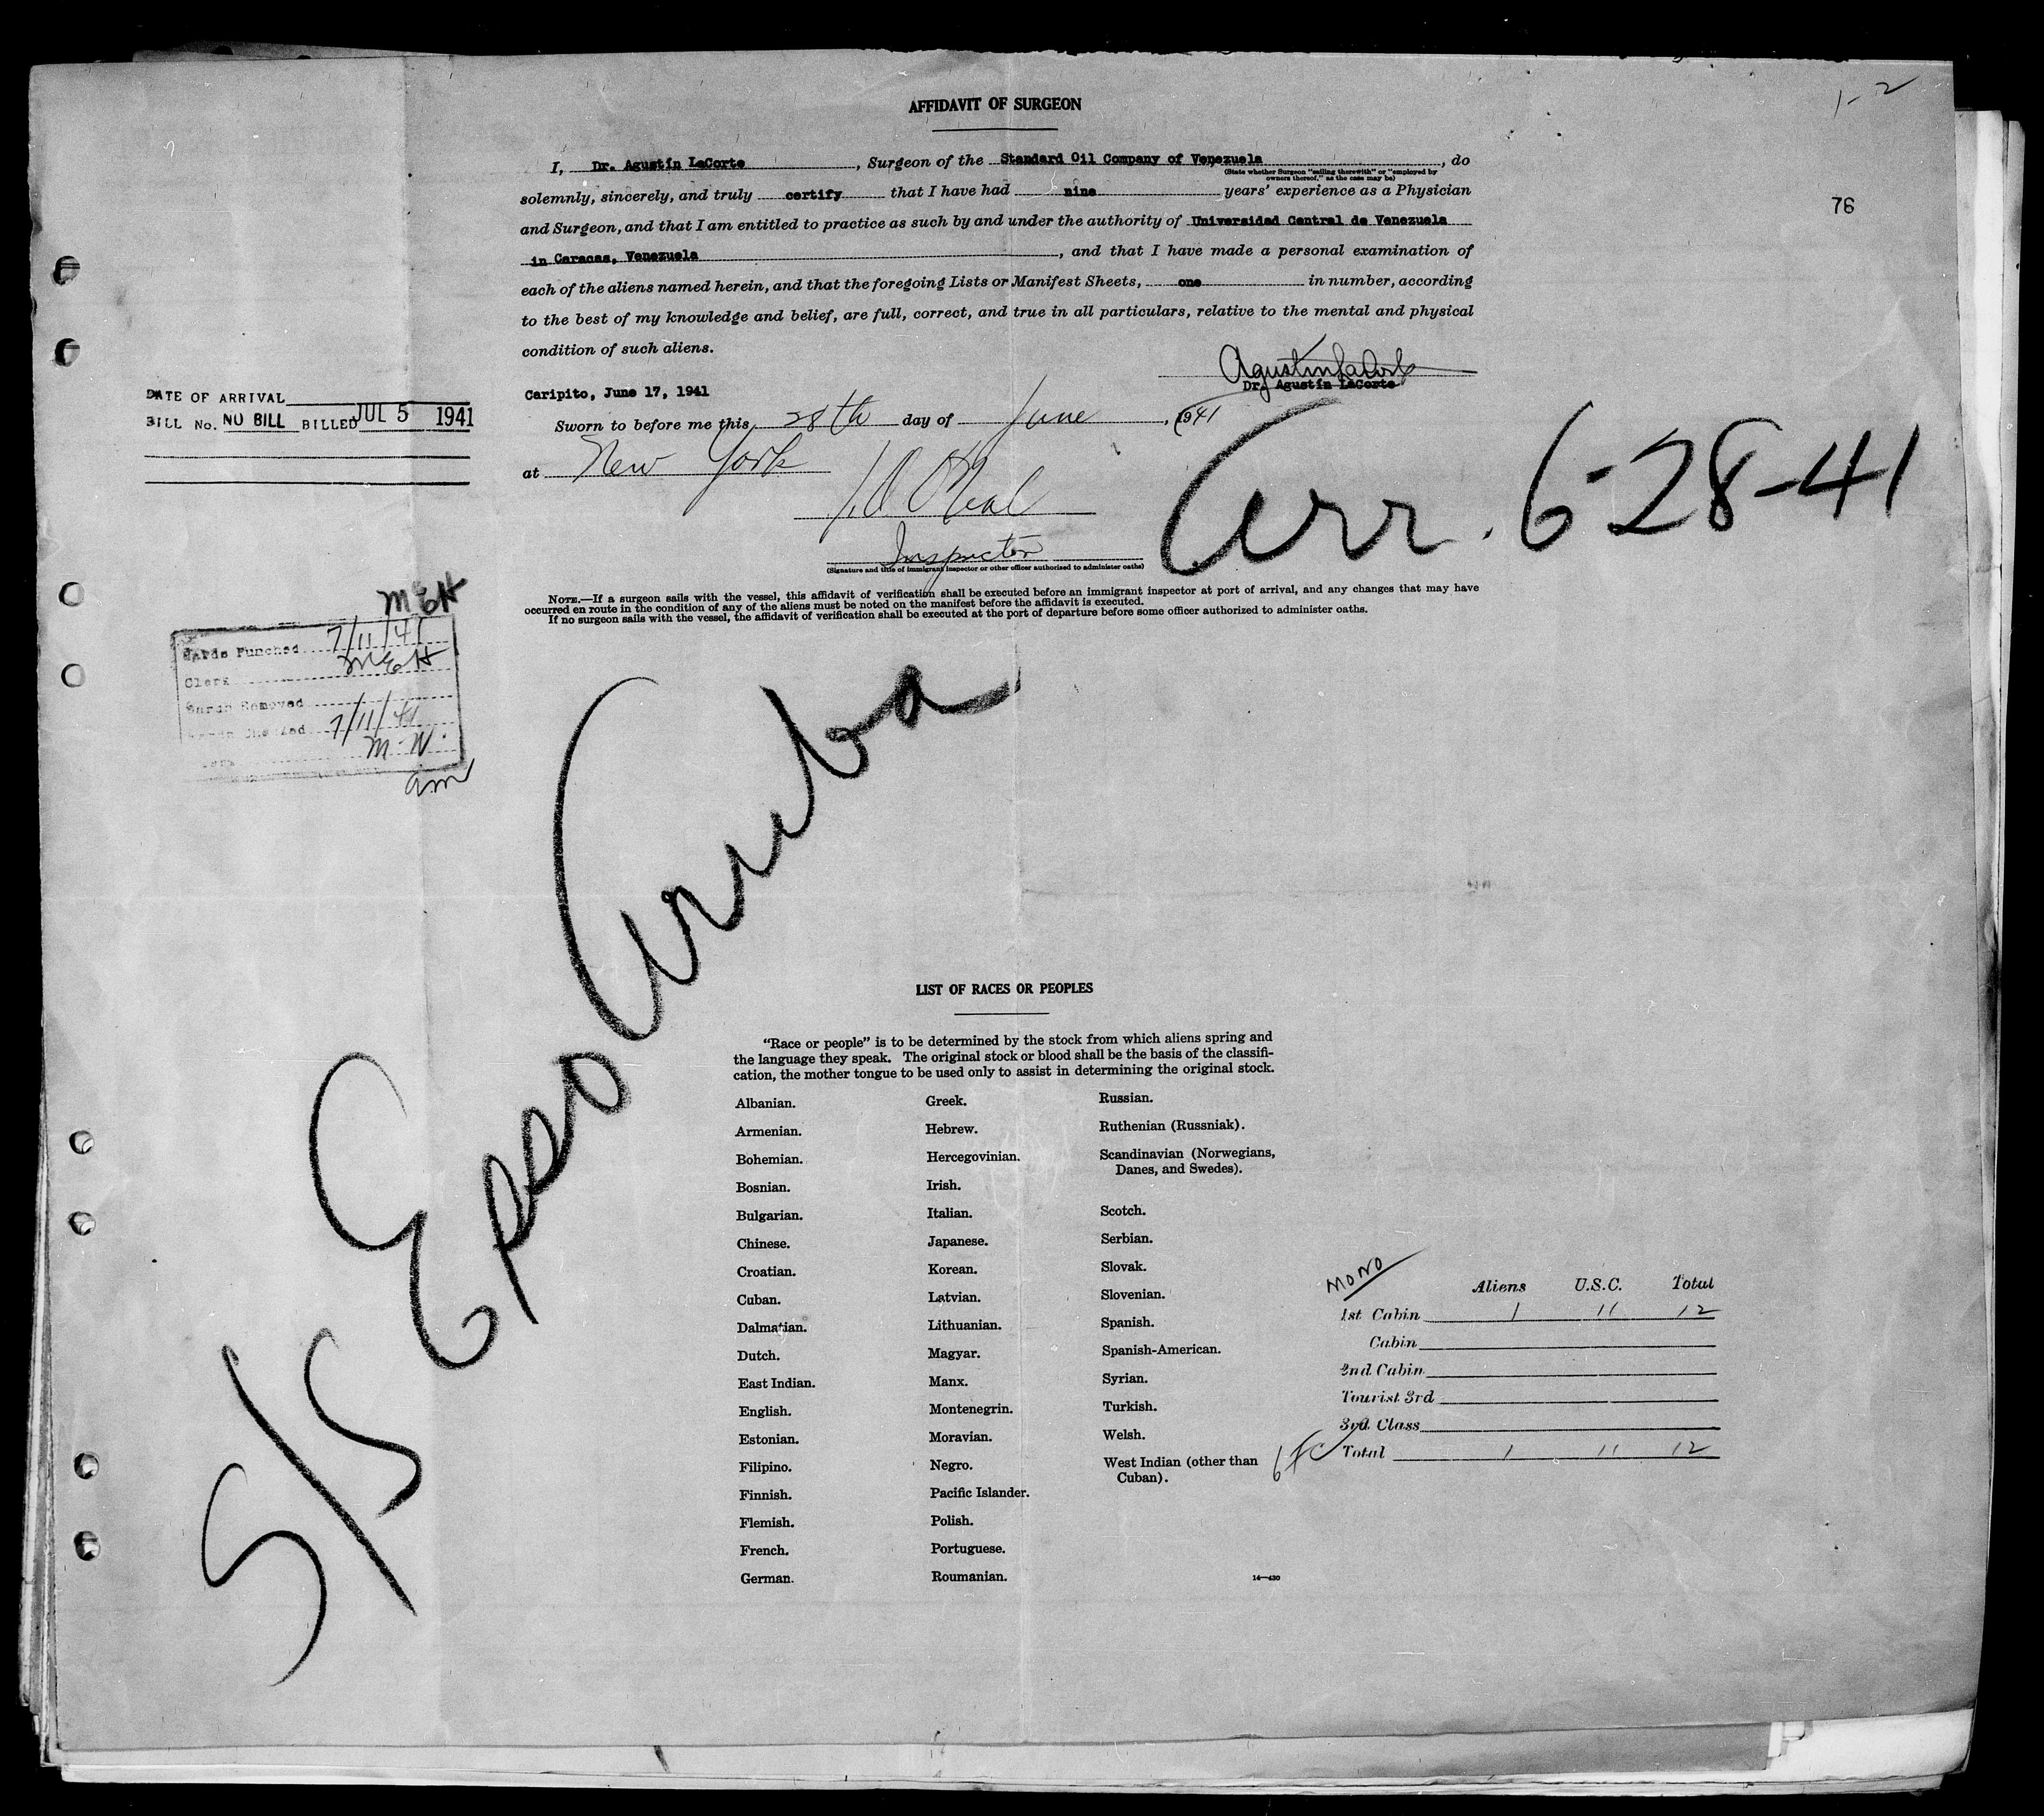 1-2
AFFIDAVIT OF SURGEON
76
I, Dr. Agustín LaCorte, Surgeon of the Standard Oil Company of Venezuela, do
(State whether Surgeon "sailing therewith" or "employed by
owners thereof," as the case may be)
solemnly, sincerely, and truly certify that I have had nine years' experience as a Physician
and Surgeon, and that I am entitled to practice as such by and under the authority of Universidad Central de Venezuela
in Caracas, Venezuela, and that I have made a personal examination of
each of the aliens named herein, and that the foregoing Lists or Manifest Sheets, one in number, according
to the best of my knowledge and belief, are full, correct, and true in all particulars, relative to the mental and physical
condition of such aliens.
Agustín LaCorte
Dr. Agustín LaCorte
Caripito, June 17, 1941
Sworn to before me this 28th day of June, 1941
at New York
Inspector
(Signature and title of immigrant inspector or other officer authorized to administer oaths)
Arr. 6-28-41
DATE OF ARRIVAL
BILL No. NO BILL BILLED JUL 5 1941
NOTE.—If a surgeon sails with the vessel, this affidavit of verification shall be executed before an immigrant inspector at port of arrival, and any changes that may have
occurred en route in the condition of any of the aliens must be noted on the manifest before the affidavit is executed.
If no surgeon sails with the vessel, the affidavit of verification shall be executed at the port of departure before some officer authorized to administer oaths.
MEH
Cards Punched 7/11/41
Clerk MEH
Cards Removed
7/11/41
M. W.
am
S/S Esso Aruba
LIST OF RACES OR PEOPLES
"Race or people" is to be determined by the stock from which aliens spring and
the language they speak. The original stock or blood shall be the basis of the classifi-
cation, the mother tongue to be used only to assist in determining the original stock.
Albanian.
Armenian.
Bohemian.
Bosnian.
Bulgarian.
Chinese.
Croatian.
Cuban.
Dalmatian.
Dutch.
East Indian.
English.
Estonian.
Filipino.
Finnish.
Flemish.
French.
German.
Greek.
Hebrew.
Hercegovinian.
Irish.
Italian.
Japanese.
Korean.
Latvian.
Lithuanian.
Magyar.
Manx.
Montenegrin.
Moravian.
Negro.
Pacific Islander.
Polish.
Portuguese.
Roumanian.
Russian.
Ruthenian (Russniak).
Scandinavian (Norwegians,
Danes, and Swedes).
Scotch.
Serbian.
Slovak.
Slovenian.
Spanish.
Spanish-American.
Syrian.
Turkish.
Welsh.
West Indian (other than
Cuban).
14—430
MONO
Aliens U.S.C. Total
1st Cabin 1 11 12
Cabin
2nd Cabin
Tourist 3rd
3rd Class
Total 1 11 12